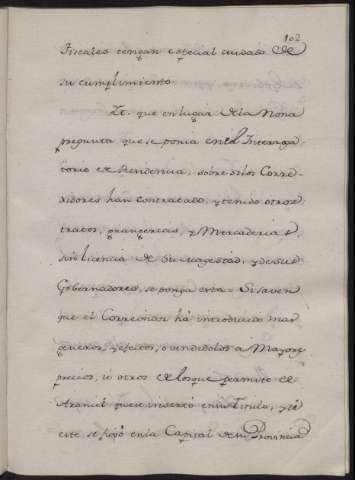 102
Fiscales tengan especial cuidado de
su cumplimiento.
It. que en lugar de la Nona
pregunta que se ponia en el Interroga
torio de Residencia, sobre si los Corre-
xidores han contratado, y tenido otros
tratos, grangerias, y Mercaderias
sin licencia de Su Magestad, y de sus
Gobernadores, se ponga esta = Si saven
que el Correxidor há introducido mas
generos, y efectos, o vendidolos a Mayores
precios, ú otros de los que permite el
Arancel que se insertó en su Titulo, y si
este se fixó en la Capital de su Provincia